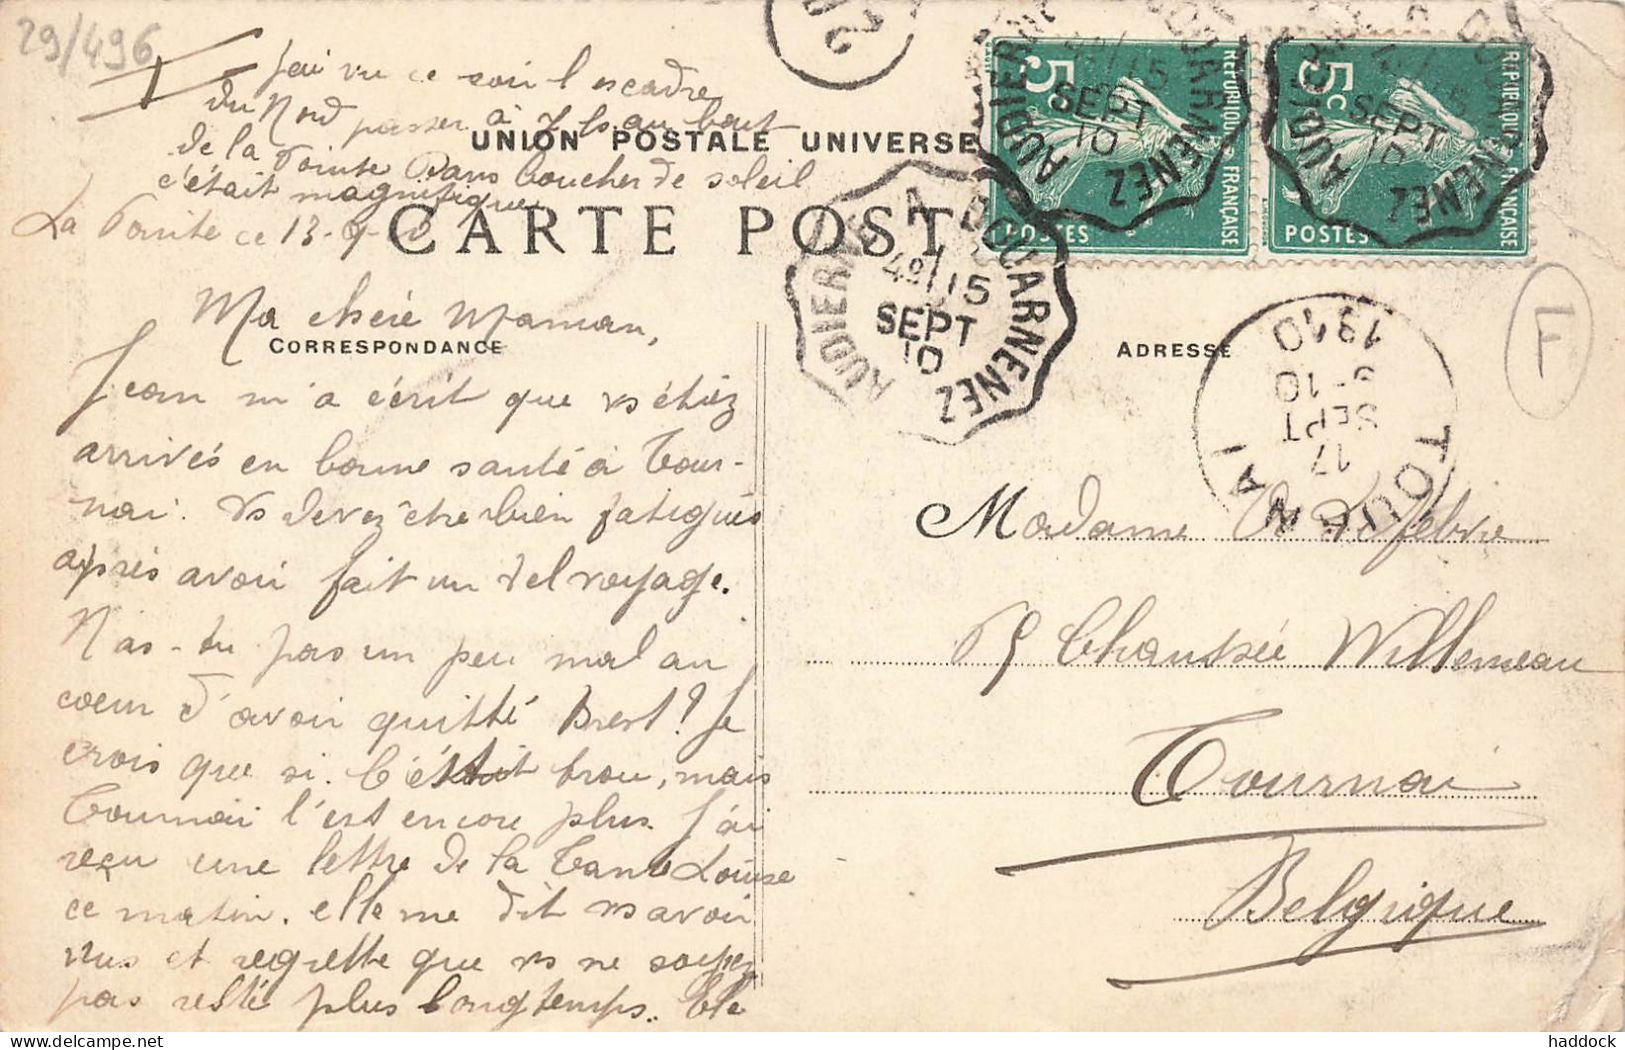 29/496
J'ai vu ce soir l'escadre
du Nord passer à 7 hs au bout
de la Pointe Dans coucher de soleil
c'était magnifique
La Pointe ce 13-9-10
UNION POSTALE UNIVERSE
CARTE POST
Ma chère Maman,
CORRESPONDANCE
Jean m'a écrit que vs étiez
arrivés en bonne santé à Tour-
nai. Vs devez être bien fatigués
après avoir fait un tel voyage.
N'as-tu pas un peu mal au
coeur d'avoir quitté Brest? Je
crois que si. C'était trou, mais
Tournai l'est encore plus. J'ai
reçu une lettre de la Tante Louise
ce matin. elle me dit vs avoir
vus et regrette que vs ne soyez
pas resté plus longtemps. Elle
5c
RÉPUBLIQUE FRANÇAISE
POSTES
5c
RÉPUBLIQUE FRANÇAISE
POSTES
AUDIERNE A DOUARNENEZ
15
SEPT
10
AUDIERNE A DOUARNENEZ
15
SEPT
10
AUDIERNE A DOUARNENEZ
15
SEPT
10
ADRESSE
TOURNAI
17
SEPT
9-10
1910
F
Madame Lefebvre
Chaussée Willemeau
Tournai
Belgique
haddock